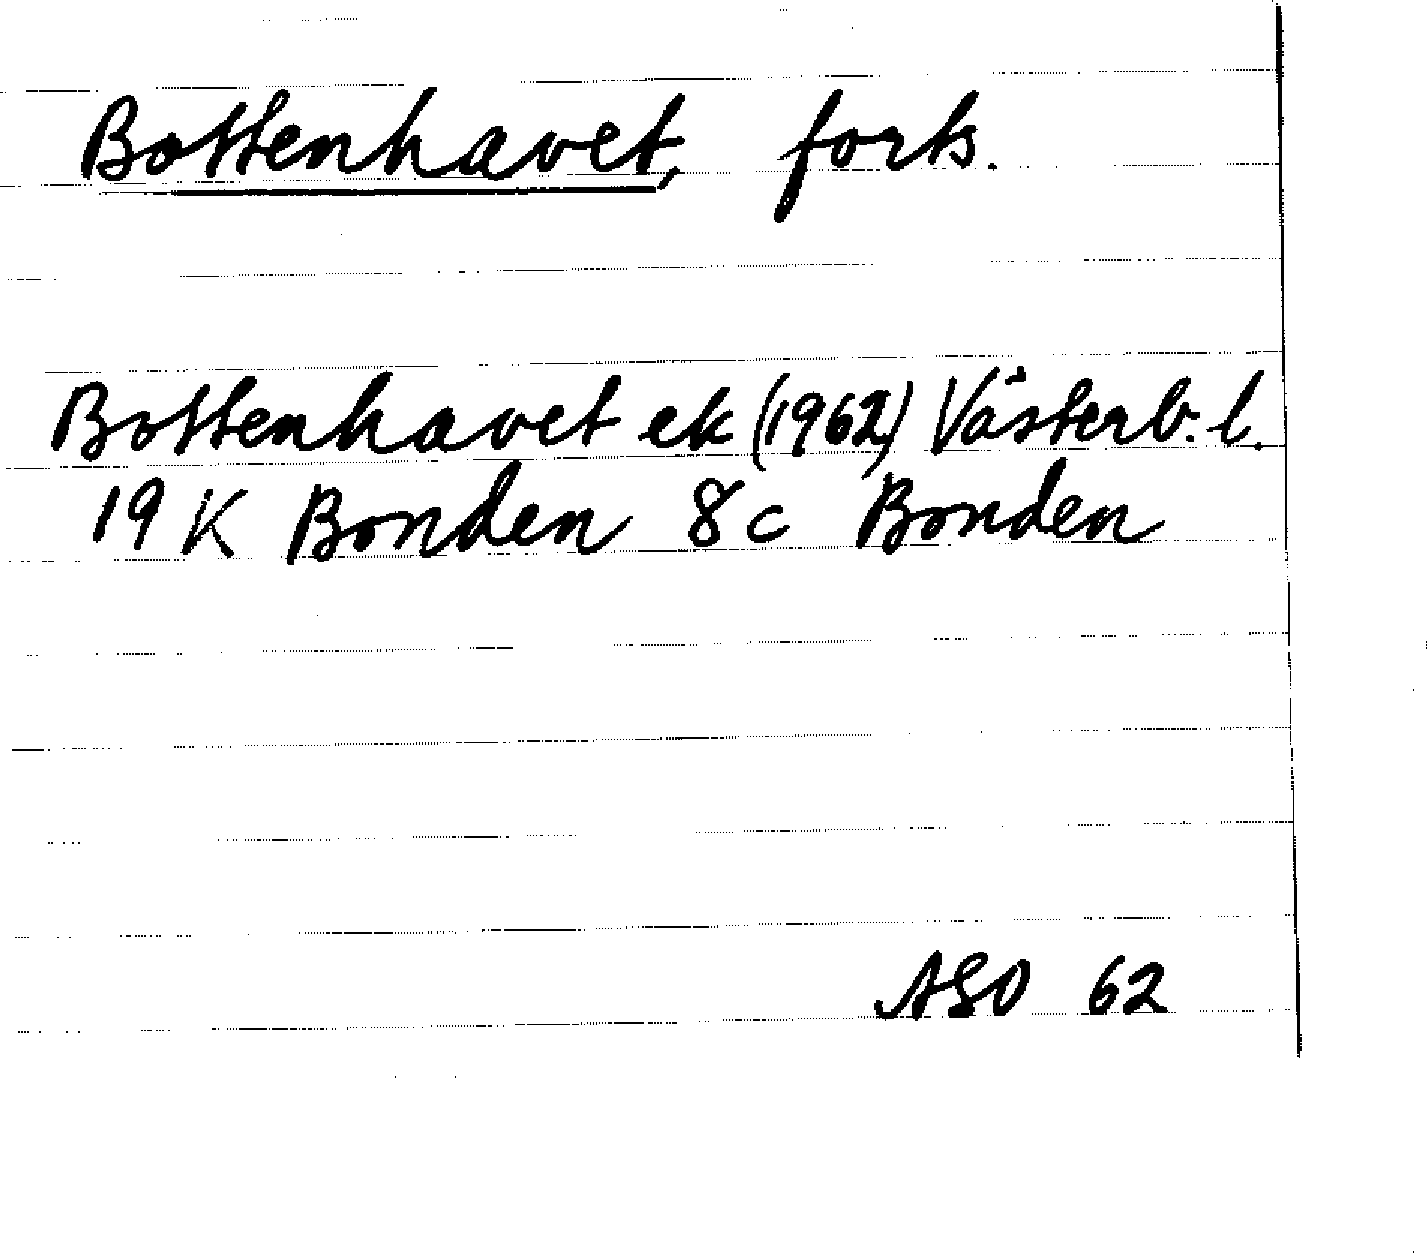 Bottenhavet, forts.
Bottenhavet ek (1962) Västerb. l.
19 K Bonden 8 c Bonden
ASO 62